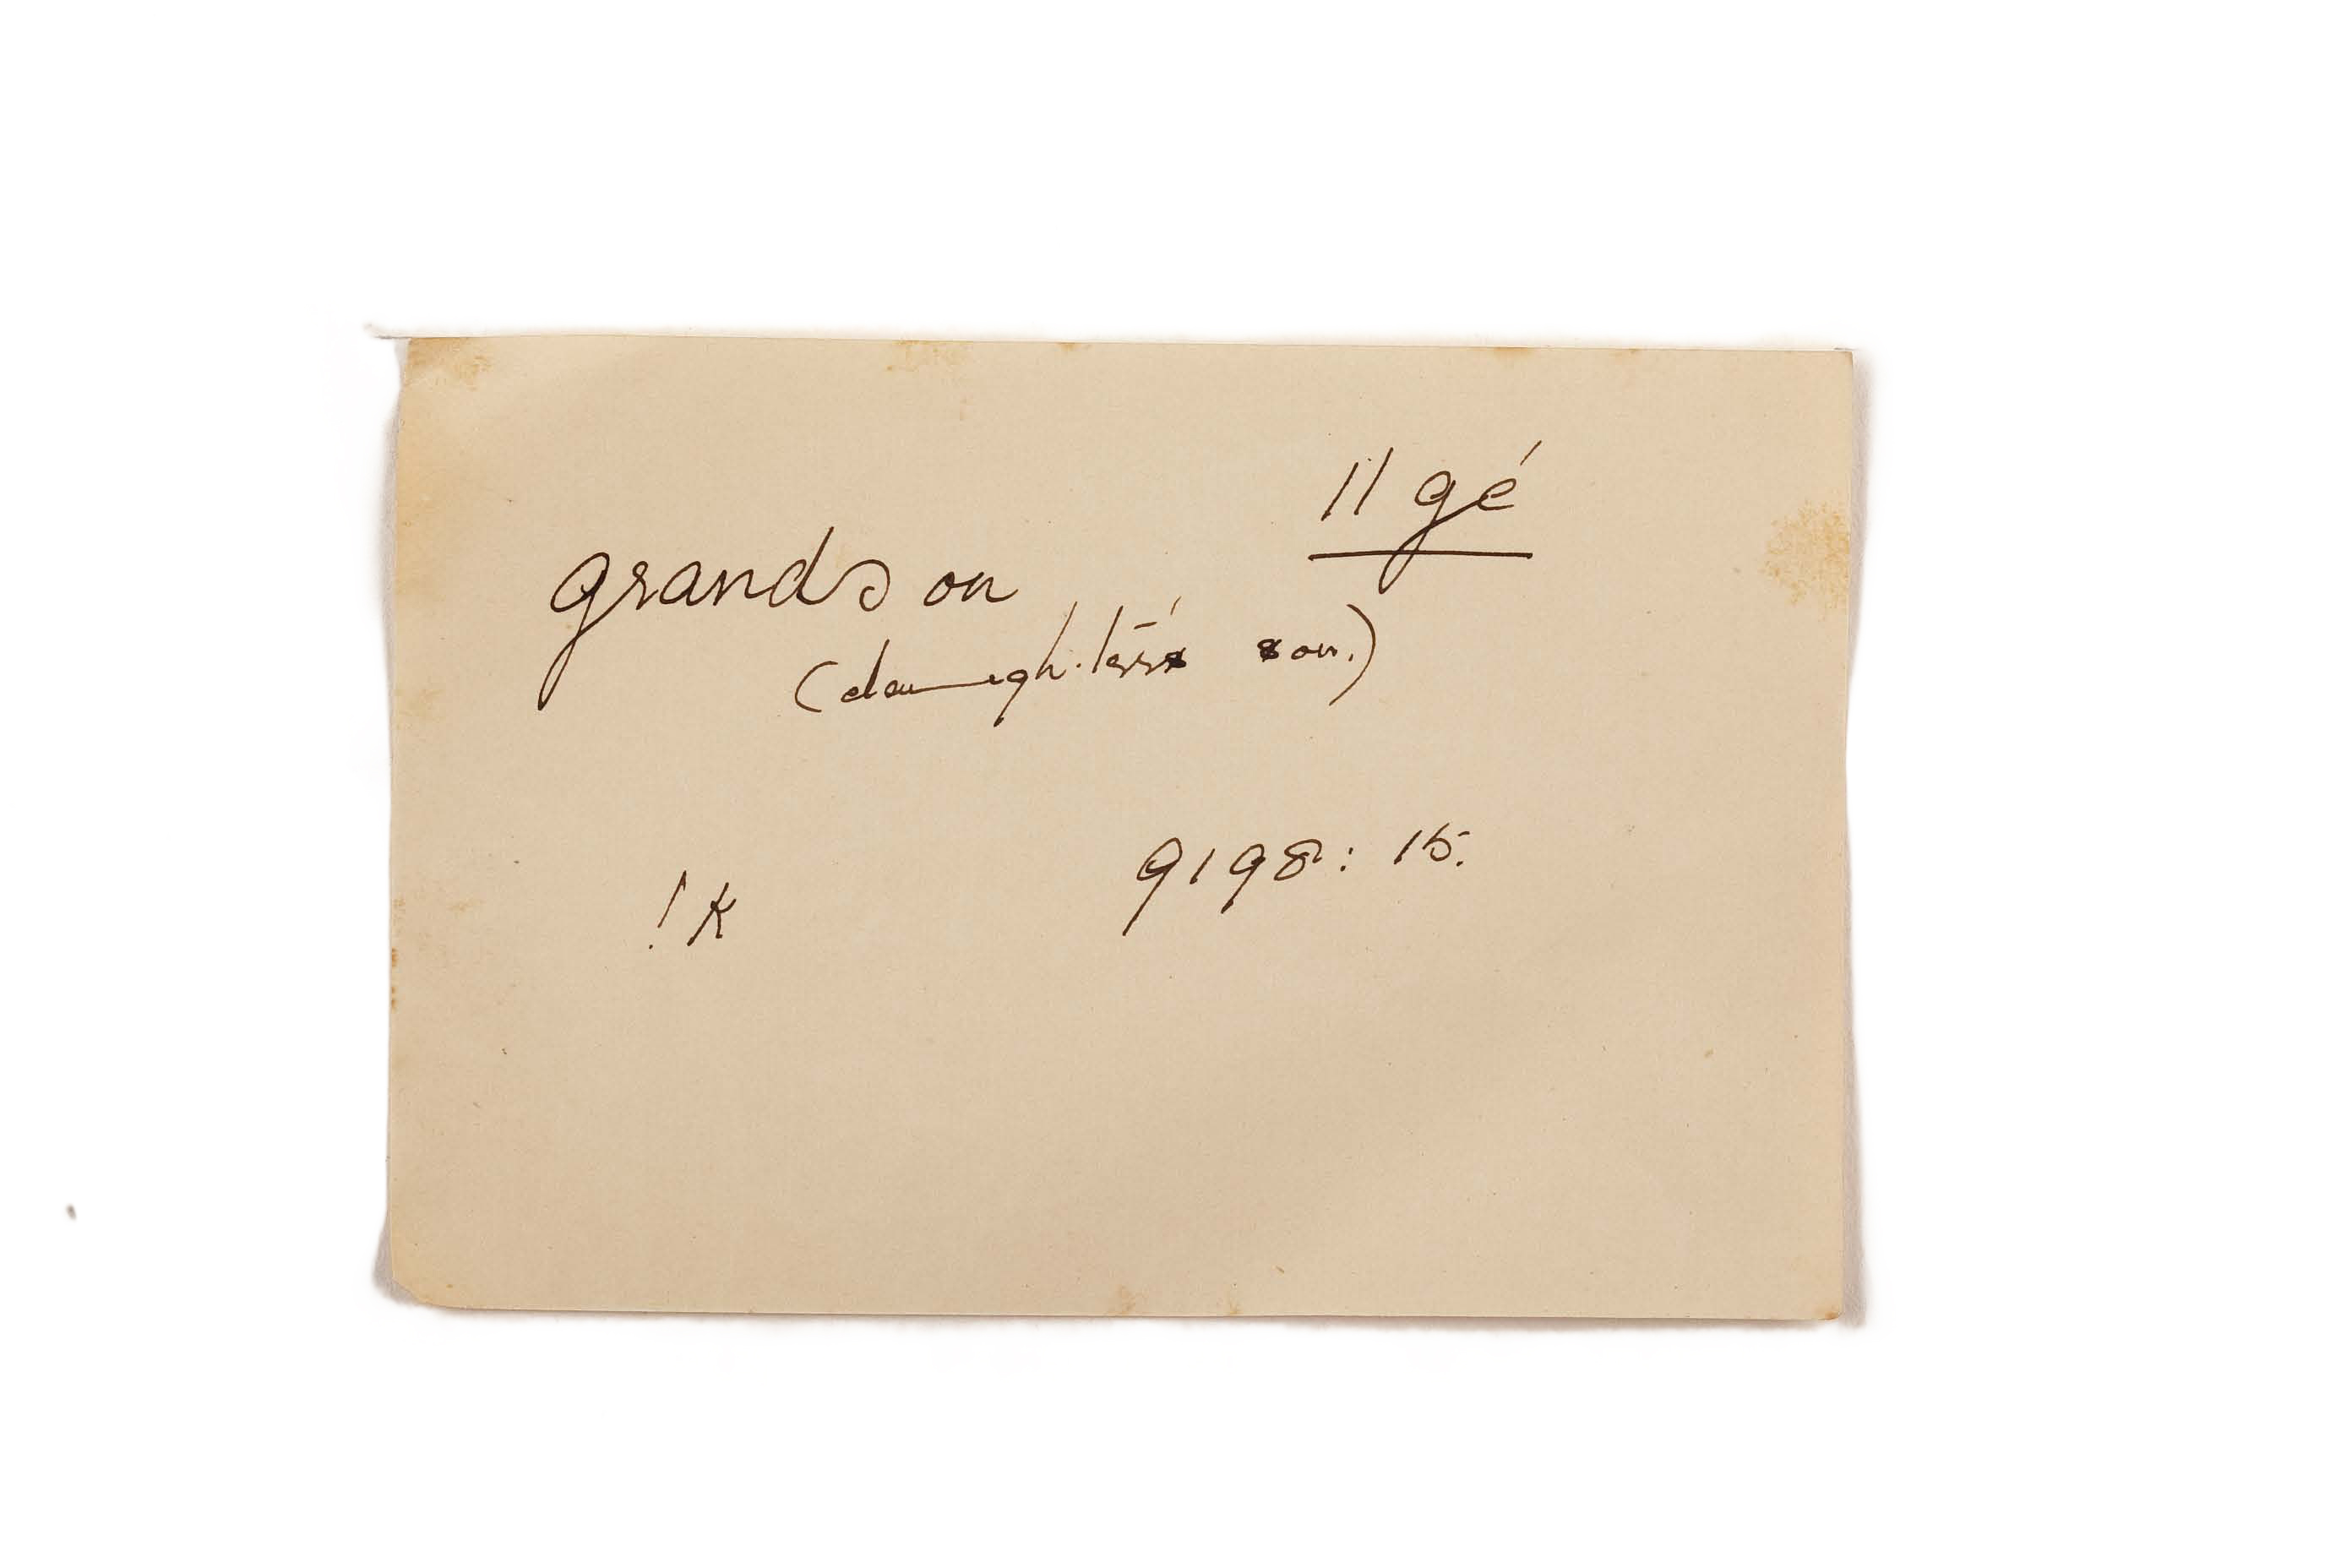 ǁgé
grandson
(daughter's son.)
!k 9198: 15.